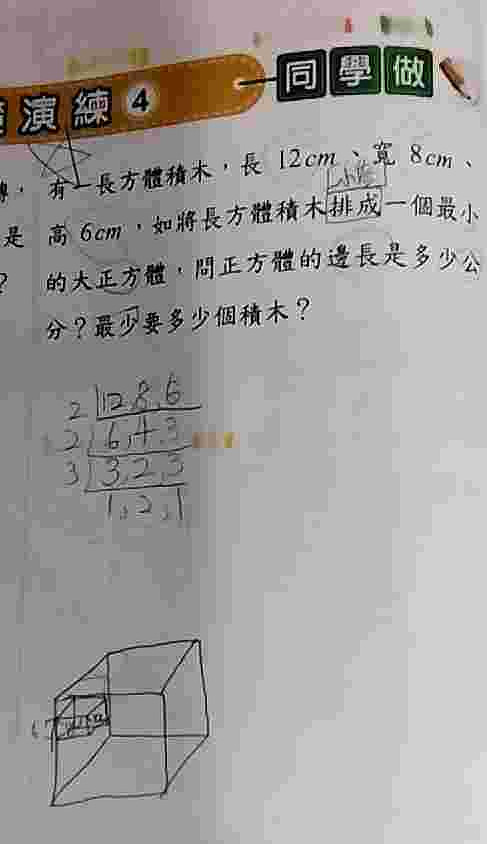 演練 4 同學做
有一長方體積木，長 12cm、寬 8cm、
是 高 6cm，如將長方體積木排成一個最小
? 的大正方體，問正方體的邊長是多少公
分？最少要多少個積木？
2 12,8,6
2 6,4,3
3 3,2,3
1,2,1